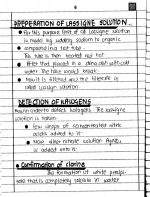 PREPARATION OF LASSIGNE SOLUTION
For this purpose first of all lassigne solution
is made by adding sodium to organic
compound in a test tube
This tube is then heated red hot
After that placed in a china dish with cold
water. The tube break
Now it is filtered and the filterate is
called lassign solution
DETECTION OF HALOGENS
In order to detect halogens the lassigne
solution is taken.
Few drops of concentrated nitric
acids added to it
Now silver nitrate solution AgNO3
is added into it
Confirmation of clorine
The formation of white precipi-
tate that is completely soluble in water